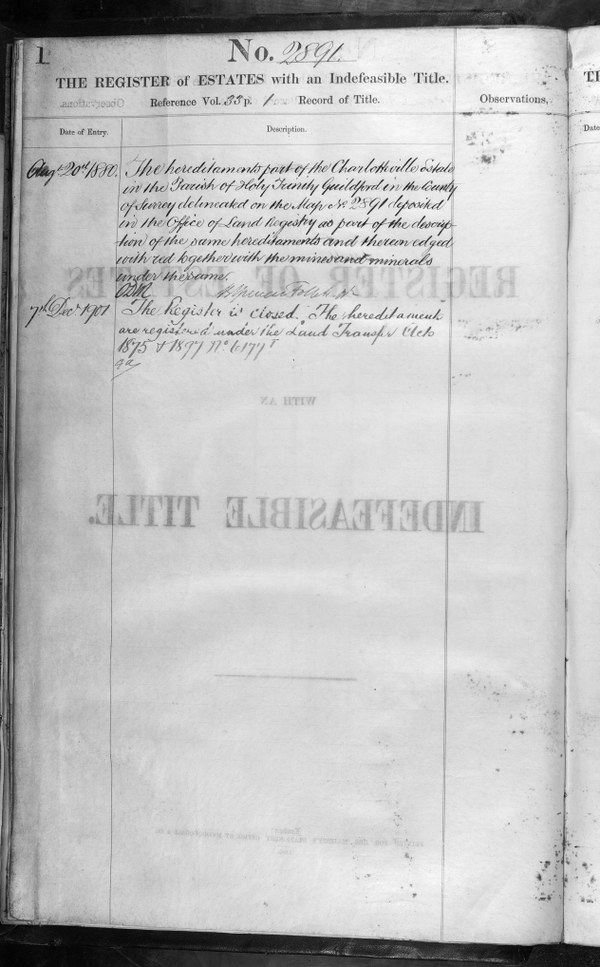 1
No. 2891.
THE REGISTER of ESTATES with an Indefeasible Title.
Reference Vol. 33 p. 1 Record of Title.
Observations.
Date of Entry.
Description.
Augt 20th 1880.
The hereditaments part of the Charlotteville Estate
in the Parish of Holy Trinity Guildford in the County
of Surrey delineated on the Map No 2891 deposited
in the Office of Land Registry as part of the descrip-
tion of the same hereditaments and thereon edged
with red together with the mines and minerals
under the same.
7th Decr 1901
The Register is closed. The hereditaments
are registered under the Land Transfer Acts
1875 & 1897 No 6177
REGISTER OF ESTATES
WITH AN
INDEFEASIBLE TITLE.
Date